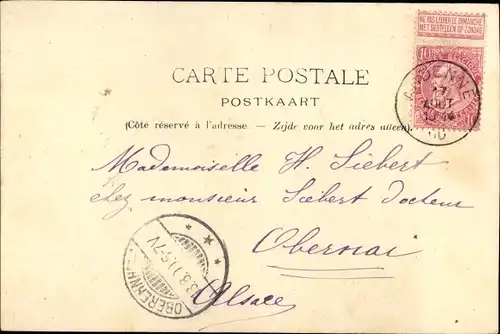 NE PAS LIVRER LE DIMANCHE
NIET BESTELLEN OP ZONDAG
10
ANDENNE
AOUT
CARTE POSTALE
POSTKAART
(Côté réservé à l'adresse — Zijde voor het adres alleen).
Mademoiselle H. Siebert
chez monsieur Siebert docteur
Obernai
Alsace
OBEREHNH